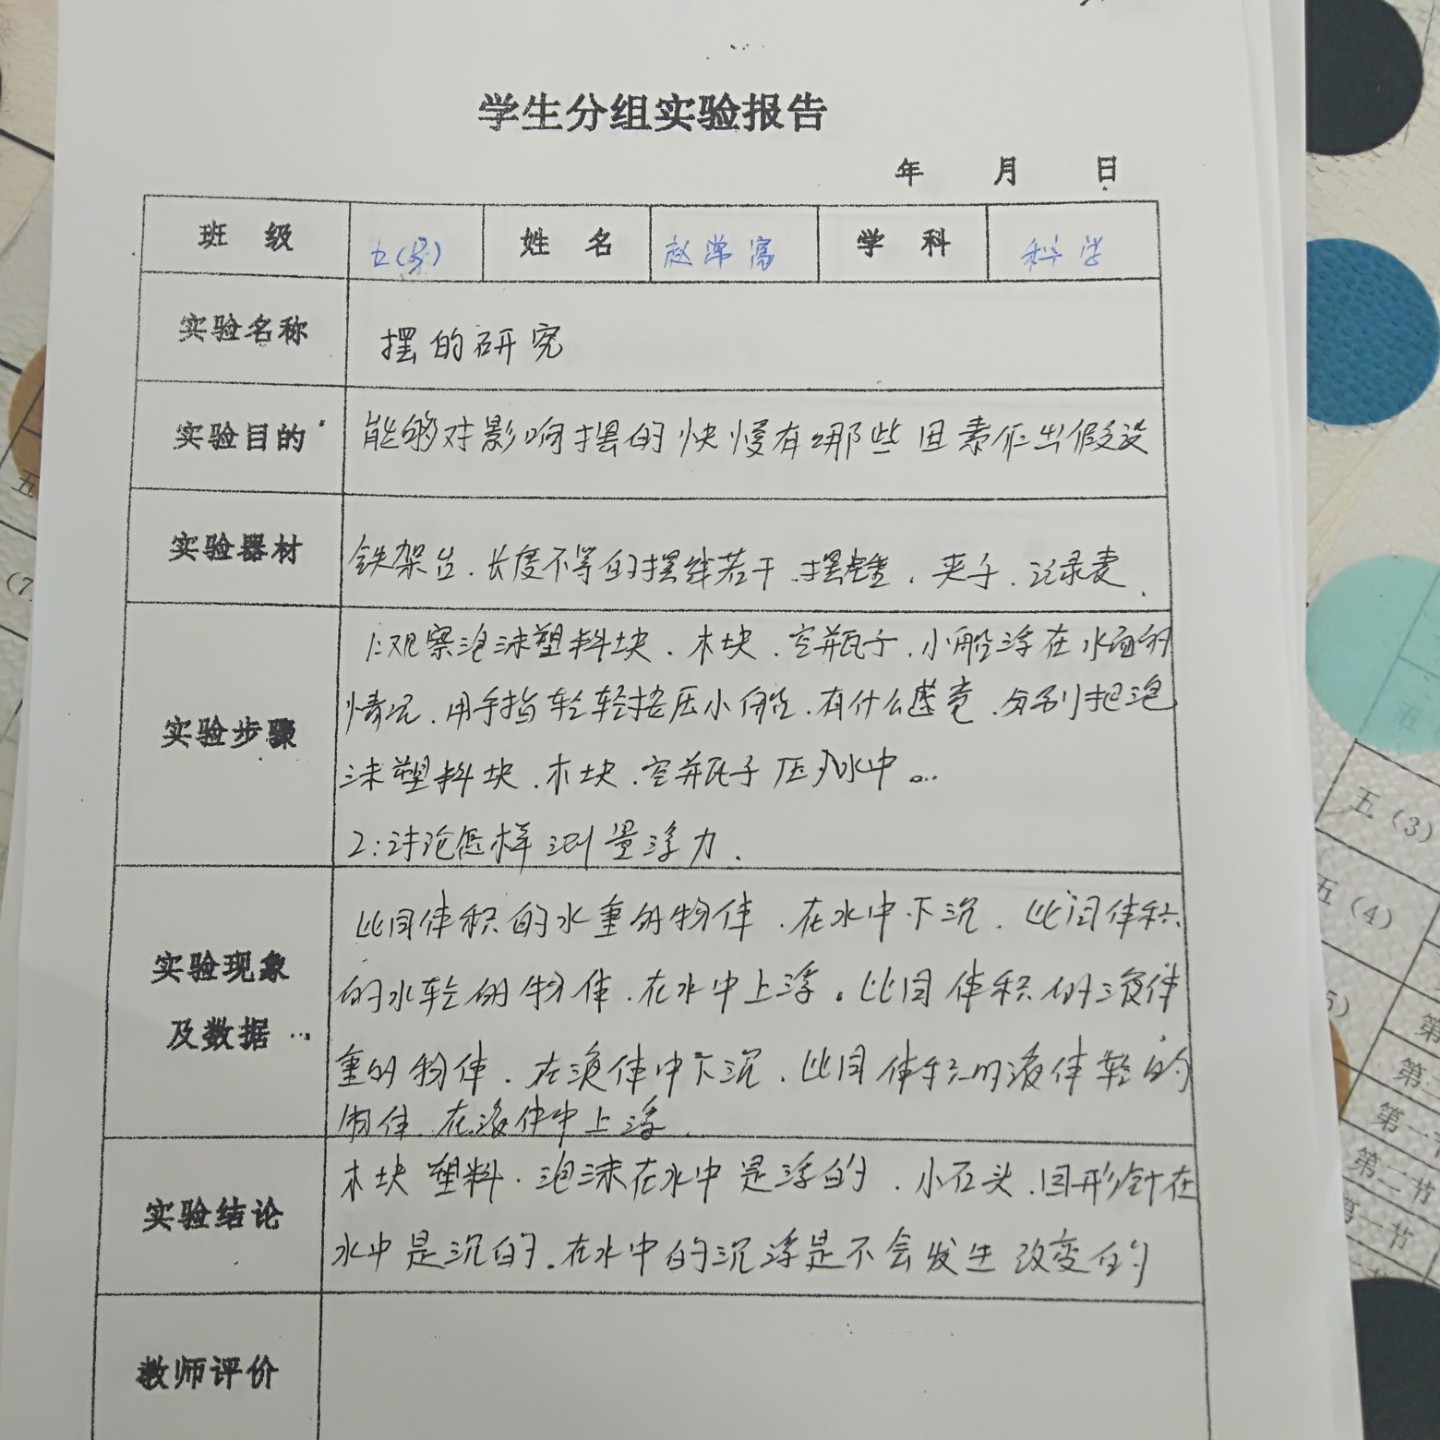 学生分组实验报告
年 月 日
班 级 五( ) 姓 名 赵 学 科 科学
实验名称 摆的研究
实验目的 能够对影响摆的快慢有哪些因素作出假设
实验器材 铁架台、长度不等的摆线若干、摆锤、夹子、记录表、
1:观察泡沫塑料块、木块、空瓶子、小船浮在水面的
情况、用手指轻轻按压小船、有什么感觉、分别把泡
实验步骤
沫塑料块、木块、空瓶子压入水中。..
2:讨论怎样测量浮力、
比同体积的水重的物体、在水中下沉、比同体积
实验现象
的水轻的物体、在水中上浮。比同体积的液体
及数据
重的物体、在液体中下沉、比同体积的液体轻的
物体、在液体中上浮、
木块 塑料、泡沫在水中是浮的、小石头、回形针在
实验结论
水中是沉的、在水中的沉浮是不会发生改变的
教师评价
五(3)
五(4)
第一节
第二节
第一节